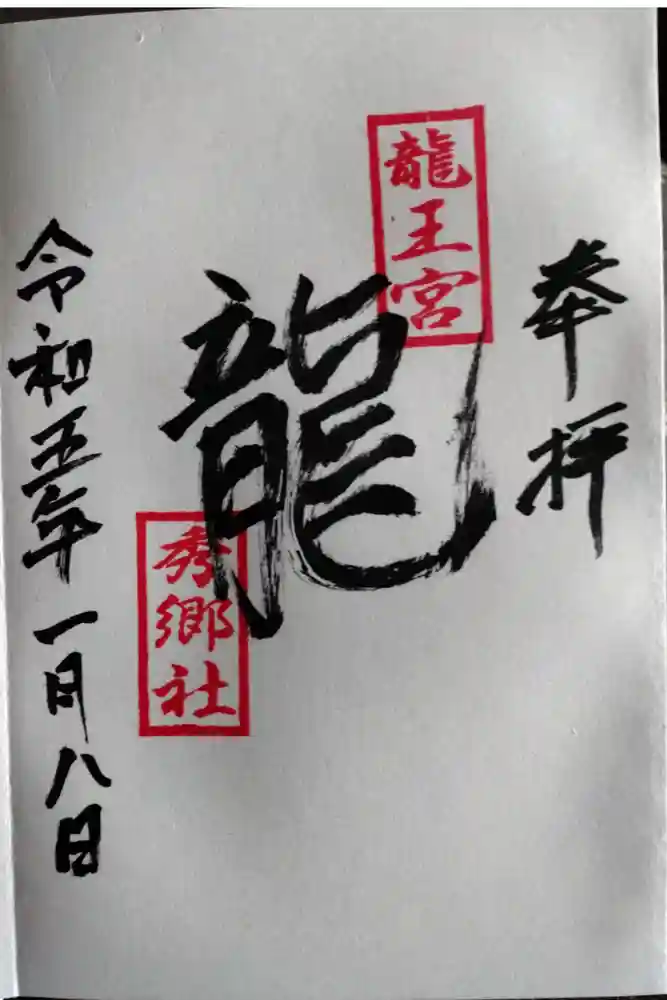 奉拝
龍王宮
龍
秀郷社
令和五年一月八日